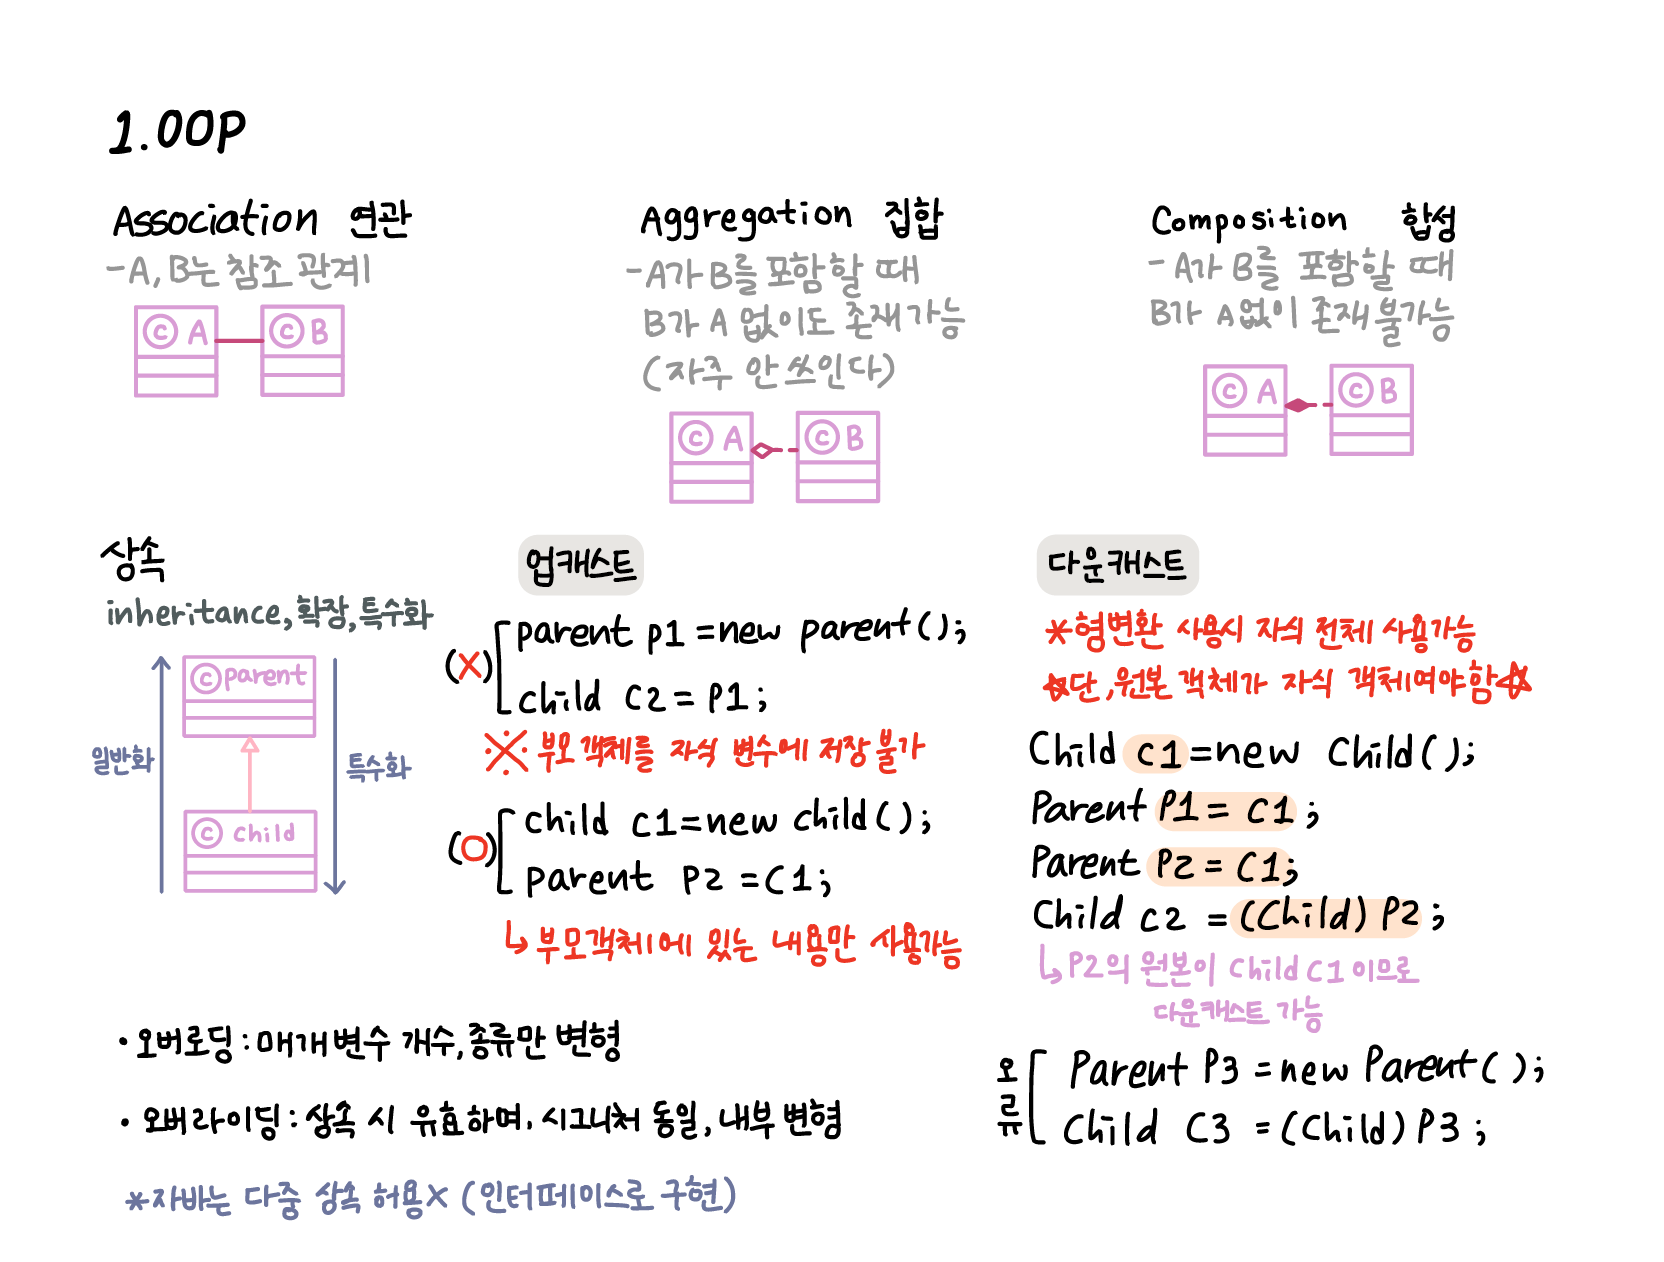 1.OOP
Association 연관
-A, B는 참조 관계
© A
© B
Aggregation 집합
-A가 B를 포함할 때
B가 A 없이도 존재가능
(자주 안 쓰인다)
© A
© B
Composition 합성
- A가 B를 포함할 때
B가 A없이 존재불가능
© A
© B
상속
inheritance, 확장, 특수화
일반화
© parent
© child
특수화
업캐스트
(X)
parent p1 = new parent();
child c2 = p1;
※ 부모 객체를 자식 변수에 저장 불가
(O)
child c1 = new child();
parent p2 = c1;
↳ 부모객체에 있는 내용만 사용가능
다운캐스트
*형변환 사용시 자식 전체 사용가능
☆단, 원본 객체가 자식 객체여야함☆
Child c1 = new Child();
Parent P1 = C1;
Parent P2 = C1;
Child c2 = (Child) P2;
↳ P2의 원본이 Child C1 이므로
다운캐스트 가능
오류
Parent P3 = new Parent();
Child C3 = (Child) P3;
• 오버로딩 : 매개변수 개수, 종류만 변형
• 오버라이딩 : 상속 시 유효하며, 시그니처 동일, 내부 변형
*자바는 다중 상속 허용X (인터페이스로 구현)